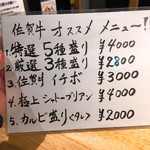 佐賀牛オススメメニュー〜!
1.特選5種盛り ¥4000
2.厳選3種盛り ¥2800
3.佐賀牛イチボ ¥3000
4.極上シャトーブリアン ¥4000
5.カルビ盛り<タレ> ¥2000